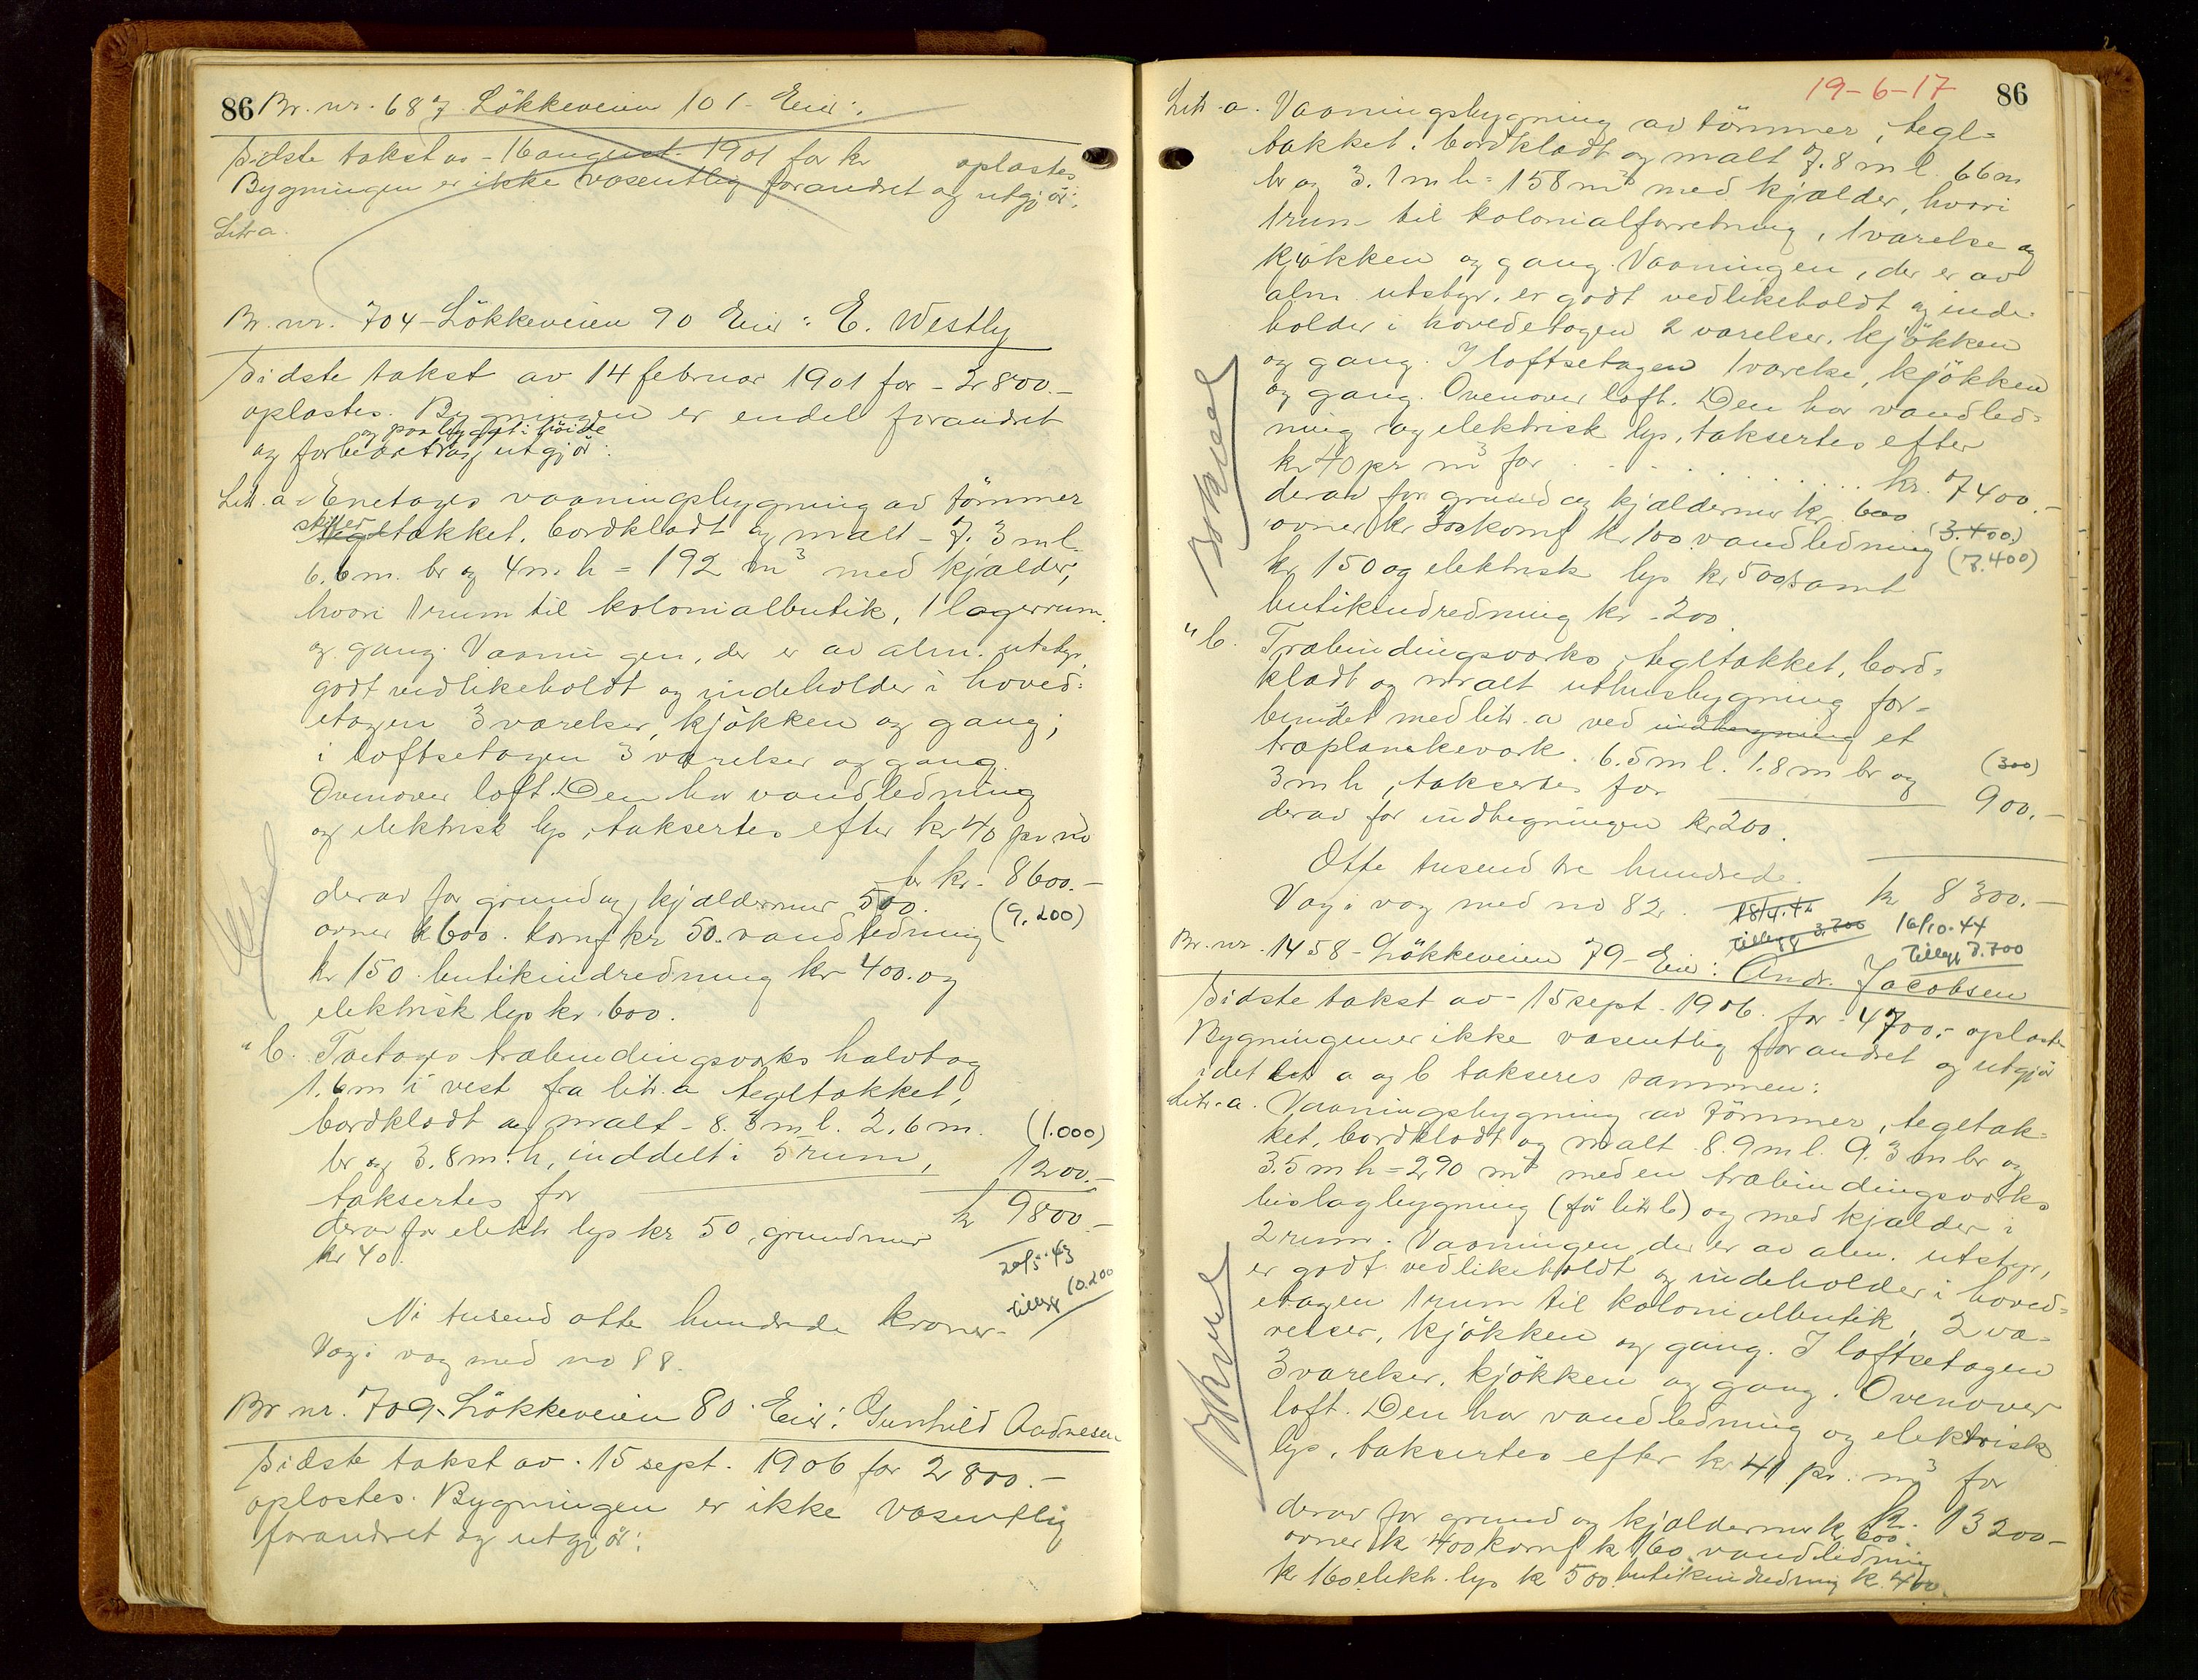 86 Br. nr. 687 Lökkeveien 101 - Eier:
Sidste takst av - 16 august 1901 for kr oplæstes
Bygningen er ikke væsentlig forandret og utgjör:
Litr a.
Br. nr. 704 - Lökkeveien 90 Eier: E. Westly
Sidste takst av 14 februar 1901 for - 2800.-
oplæstes. Bygningen er endel forandret
og paabygget i höide
og forbedret utgjör:
Litr. a - Enetages vaaningsbygning av tömmer
skifer
tegltækket, bordklædt og malt - 7.3 m l.
6.6 m. br og 4 m. h = 192 m³ med kjælder,
hvori 1 rum til kolonialbutik, 1 lagerrum
og gang. Vaaningen, der er av alm. utstyr,
godt vedlikeholdt og indeholder i hoved=
etagen 3 værelser, kjökken og gang;
i loftsetagen 3 værelser og gang.
Ovenover loft. Den har vandledning
og elektrisk lys, taksertes efter kr 40 pr m³
for kr. 8600.-
derav for grund og kjældermur 500.
(9.200)
ovner k 600. komf kr 50. vandledning
kr 150. butikindredning kr 400. og
elektrisk lys kr. 600.
" b. Toetages træbindingsværks halvtag
1.6 m i vest fra litr. a tegltækket,
bordklædt og malt - 8.3 m l. 2.6 m. (1.000)
br og 3.8 m. h, inddelt i 5 rum, 1200.-
taksertes for
kr 9800.-
derav for elektr lys kr 50, grundmur
kr 40.
20/5-43
tillegg 10.200
Ni tusend otte hundrede kroner-
Væg i væg med no 88.
Br nr. 709 - Lökkeveien 80. Eier: Gunhild Aadnesen
Sidste takst av. 15 sept. 1906 for 2800.-
oplæstes. Bygningen er ikke væsentlig
forandret og utgjör:
19-6-17 86
Litr. a. Vaaningsbygning av tömmer, tegl=
tækket, bordklædt og malt 7.8 m l. 6.6 m
br og 3.1 m h = 158 m³ med kjælder, hvori
1 rum til kolonialforretning, 1 værelse og
kjökken og gang. Vaaningen, der er av
alm. utstyr, er godt vedlikeholdt og inde-
holder i hovedetagen 2 værelser, kjökken
og gang. I loftsetagen 1 værelse, kjökken
og gang. Ovenover loft. Den har vandled=
ning og elektrisk lys, taksertes efter
kr 40 pr m³ for . . . . . . . kr. 7400.-
derav for grund og kjældermur kr. 600 (3.400)
ovner kr 300 komf kr 100 vandledning (7.400)
kr 150 og elektrisk lys kr 500 samt
butikindredning kr. 200.
" b. Træbindingsværks, tegltækket, bord=
klædt og malt uthusbygning for-
bundet med litr. a ved indhegning et
træplankeværk. 6.5 m l. 1.8 m br og (300)
3 m h, taksertes for 900.-
derav for indhegningen kr 200.
Otte tusend tre hundrede. kr 8300.-
Væg i væg med no 82. 18/4.42 16/10-44
tillegg 3.800 tillegg 7.700
Br. nr. 1458 - Lökkeveien 79 - Eier: Andr. Jacobsen
Sidste takst av - 15 sept. 1906. for - 4700.- oplæstes
Bygningen er ikke væsentlig forandret og utgjör
idet litr a og b takseres sammen:
Litr. a. Vaaningsbygning av tömmer, tegltæk=
ket, bordklædt og malt 8.9 m l. 9.3 m br og
3.5 m h = 290 m³ med en træbindingsværks
bislagbygning (för litr b) og med kjælder i
2 rum. Vaaningen, der er av alm. utstyr,
er godt vedlikeholdt og indeholder i hoved=
etagen 1 rum til kolonialbutik, 2 væ-
relser, kjökken og gang. I loftsetagen
3 værelser, kjökken og gang. Ovenover
loft. Den har vandledning og elektrisk
lys, taksertes efter kr 41 pr. m³ for
kr. 13200.-
derav for grund og kjældermur kr 600.
ovner k 400 komf k 160 vandledning
kr 160 elektr. lys k 500 butikindredning k. 400.